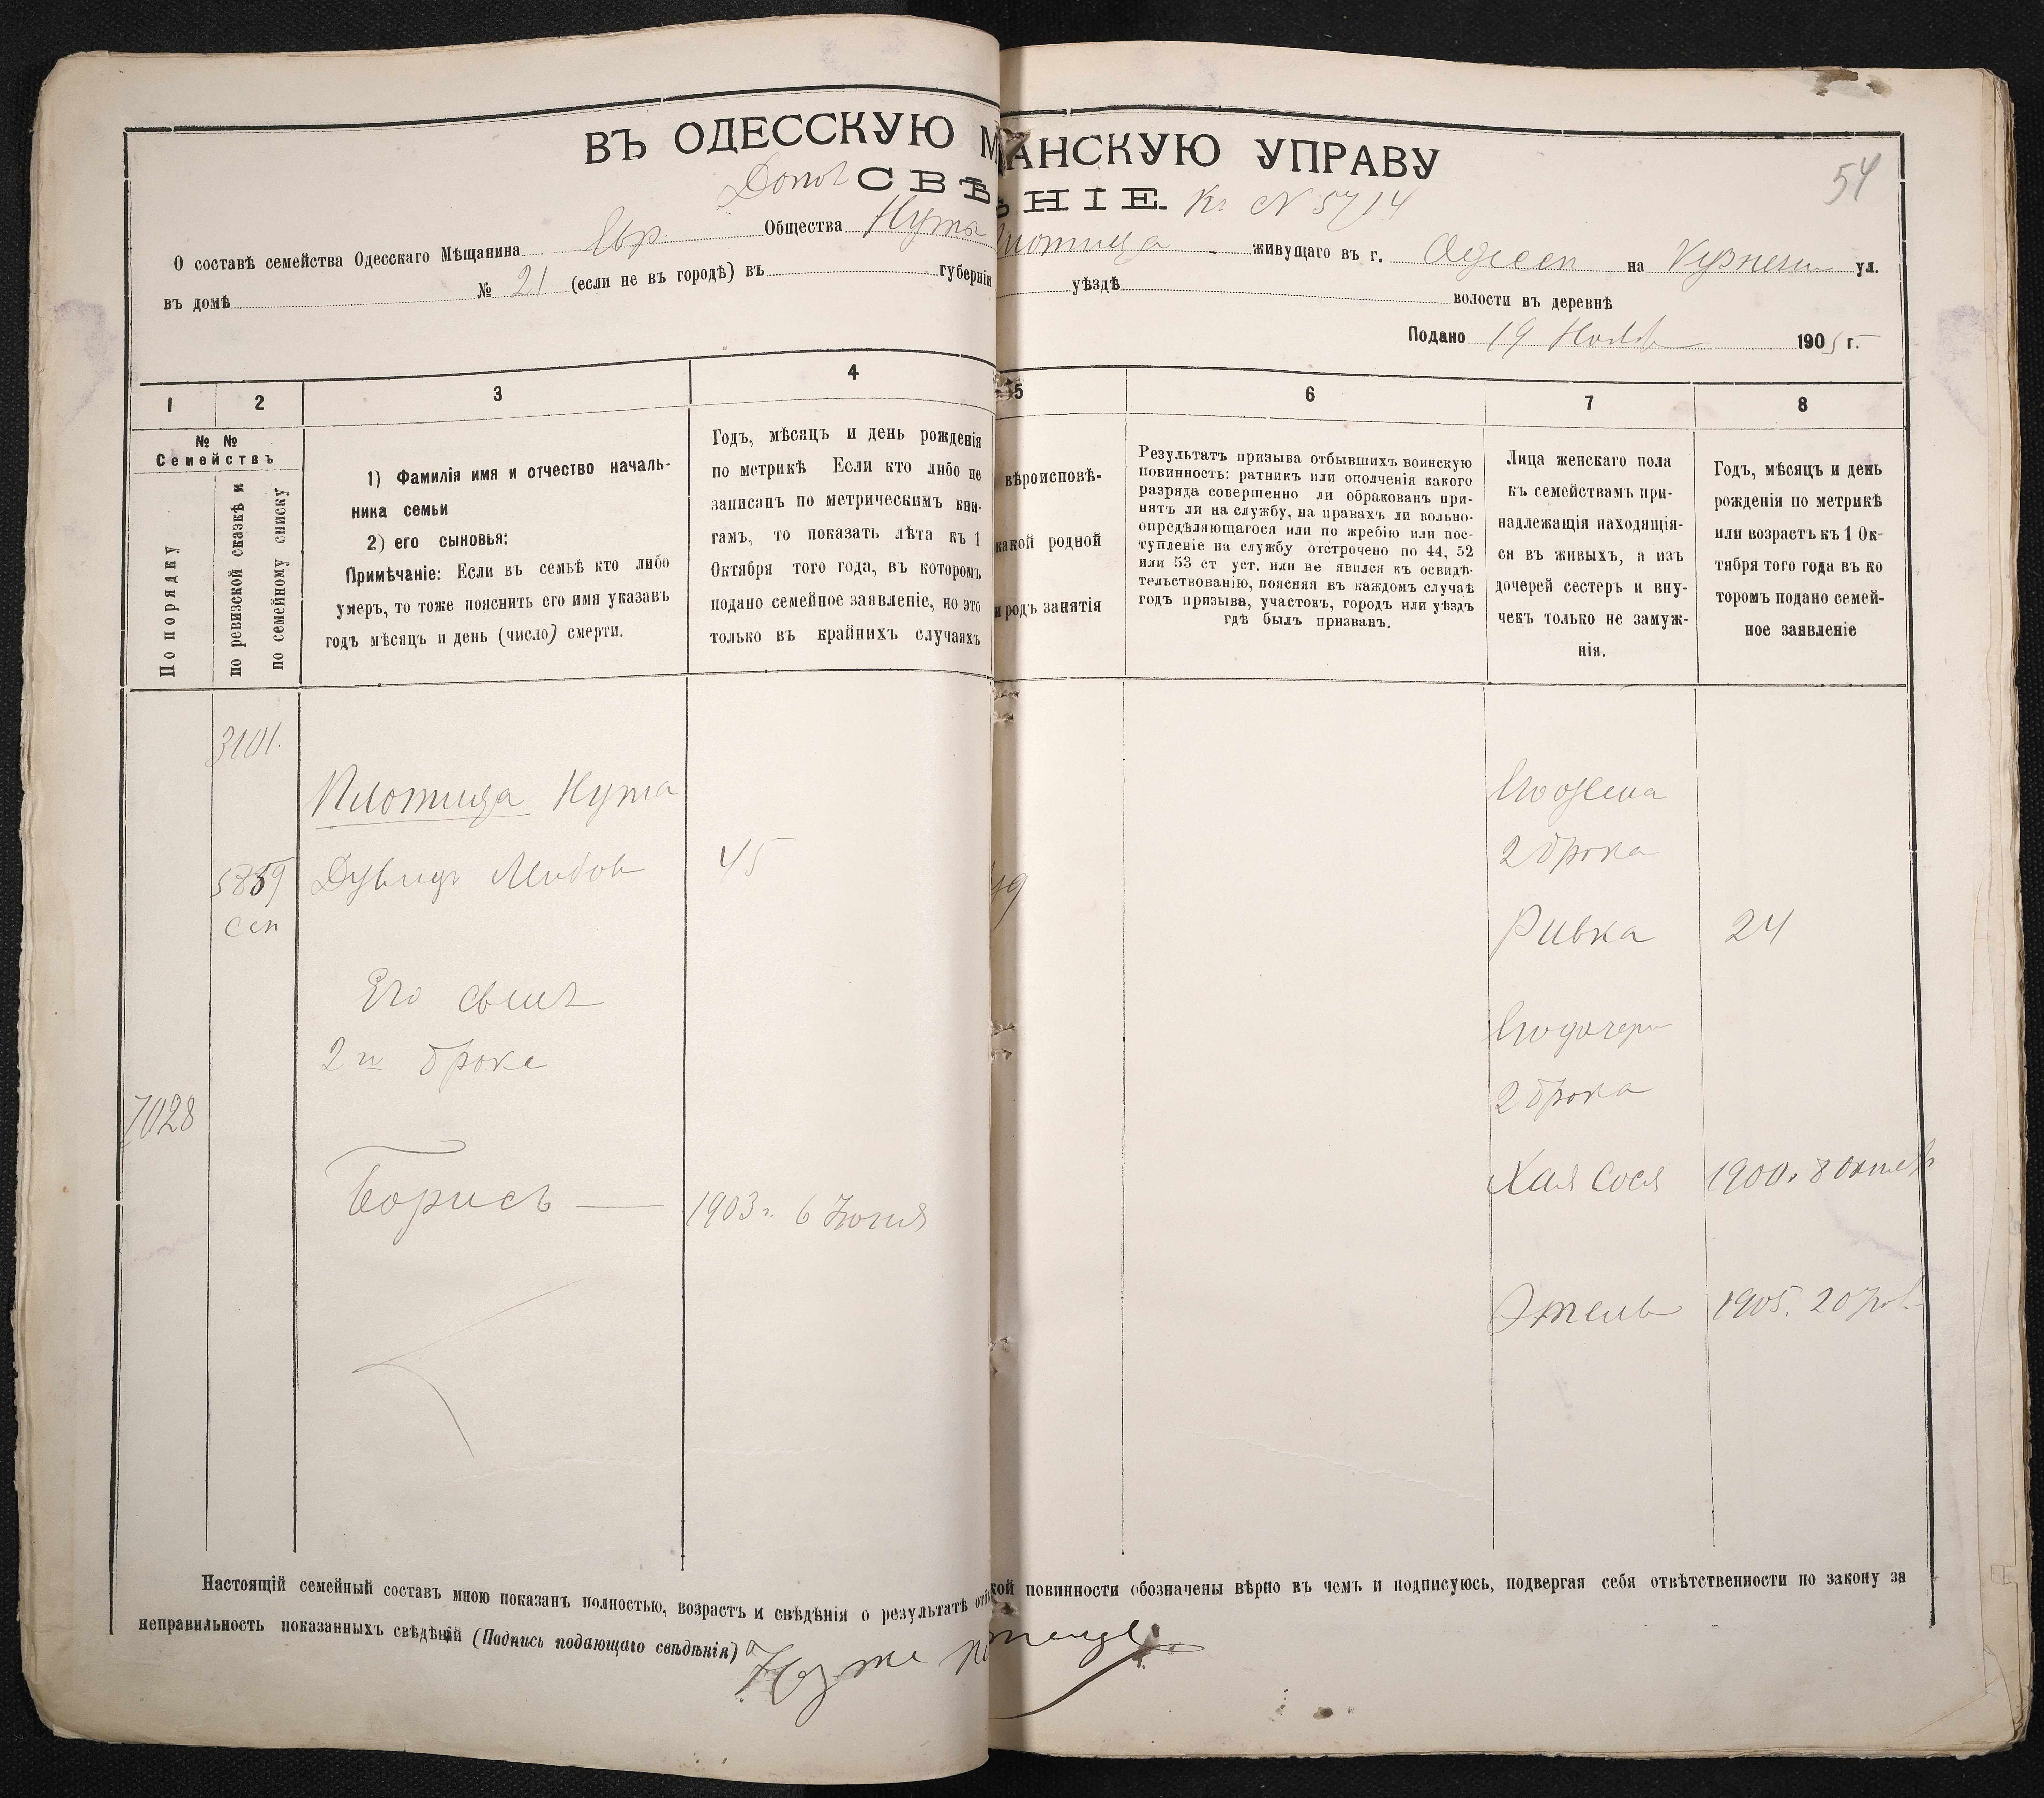 ВЪ ОДЕССКУЮ М АНСКУЮ УПРАВУ
54
Допол СВѢ НІЕ. Кг № 5714
О составѣ семейства Одесскаго Мѣщанина Евр. Общества Нуты лотица живущаго въ г. Одессѣ на Кузнечн ул.
въ домѣ № 21 (если не въ городѣ) въ губерніи уѣздѣ волости въ деревнѣ
Подано 19 Нояб 1905 г.
1 2 3 4 5 6 7 8
№ №
Семействъ
По порядку
по ревизской сказкѣ и
по семейному списку
1) Фамилія имя и отчество началь-
ника семьи
2) его сыновья:
Примѣчаніе: Если въ семьѣ кто либо
умеръ, то тоже пояснить его имя указавъ
годъ мѣсяцъ и день (число) смерти.
Годъ, мѣсяцъ и день рожденія
по метрикѣ Если кто либо не
записанъ по метрическимъ кни-
гамъ, то показать лѣта къ 1
Октября того года, въ которомъ
подано семейное заявленіе, но это
только въ крайнихъ случаяхъ
вѣроисповѣ-
какой родной
и родъ занятія
Результатъ призыва отбывшихъ воинскую
повинность: ратникъ или ополченія какого
разряда совершенно ли обракованъ при-
нятъ ли на службу, на правахъ ли вольно-
опредѣляющагося или по жребію или пос-
тупленіе на службу отстрочено по 44, 52
или 53 ст уст. или не явился къ освидѣ-
тельствованію, поясняя въ каждомъ случаѣ
годъ призыва, участокъ, городъ или уѣздъ
гдѣ былъ призванъ.
Лица женскаго пола
къ семействамъ при-
надлежащія находящія-
ся въ живыхъ, а изъ
дочерей сестеръ и вну-
чекъ только не замуж-
нія.
Годъ, мѣсяцъ и день
рожденія по метрикѣ
или возрастъ къ 1 Ок-
тября того года въ ко
торомъ подано семей-
ное заявленіе
3101.
Плотица Нута
5859 Дувидъ Лейбов 45
сп
Его сынъ
2го брака
7028
Борисъ — 1903 г. 6 Іюня
уд
Его жена
2 брака
Ривка 24
Его дочери
2 брака
Хая Сося 1900. 8 Октяб
Этель 1905. 20
Настоящій семейный составъ мною показанъ полностью, возрастъ и свѣдѣнія о результатѣ кой повинности обозначены вѣрно въ чемъ и подписуюсь, подвергая себя отвѣтственности по закону за
неправильность показанныхъ свѣдѣній (Подпись подающаго свѣдѣнія)